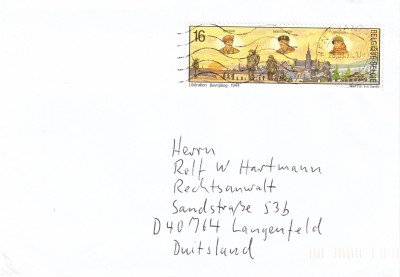 16
BELGIQUE-BELGIË
Libération Bevrijding 1944
Herrn
Rolf W Hartmann
Rechtsanwalt
Sandstraße 53b
D 40764 Langenfeld
Duitsland